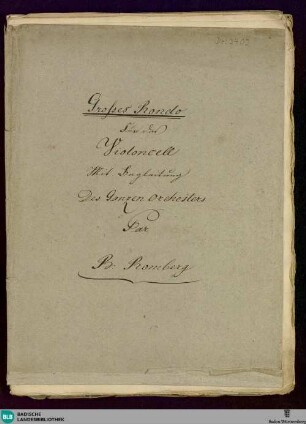 Großes Rondo
Für das
Violoncell
Mit Begleitung
Des Ganzen Orchesters
Par
B. Romberg
BLB
BADISCHE
LANDESBIBLIOTHEK
Baden-Württemberg